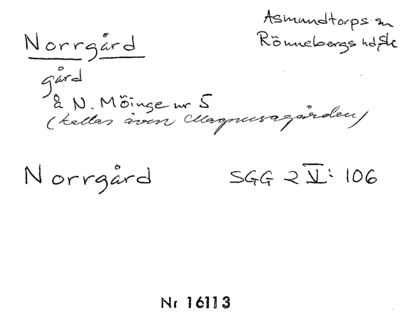 Norrgård
Asmundtorps sn
Rönnebergs hd, Sk
gård
å N. Möinge nr 5
(kallas även Magnusagården)
Norrgård SGG 2 V: 106
Nr 16113